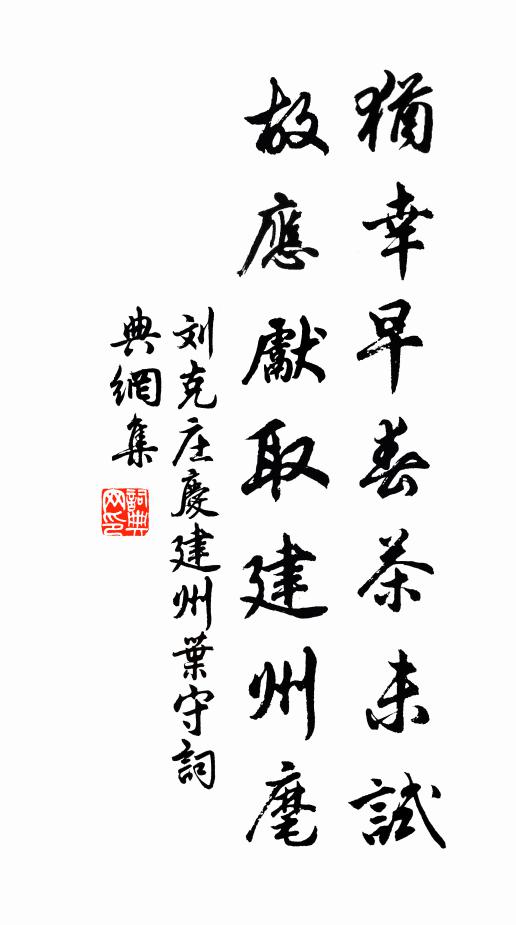 猶幸早春茶未試
故應獻取建州麾
刘克庄慶建州葉守詞
典網集
詞典網印